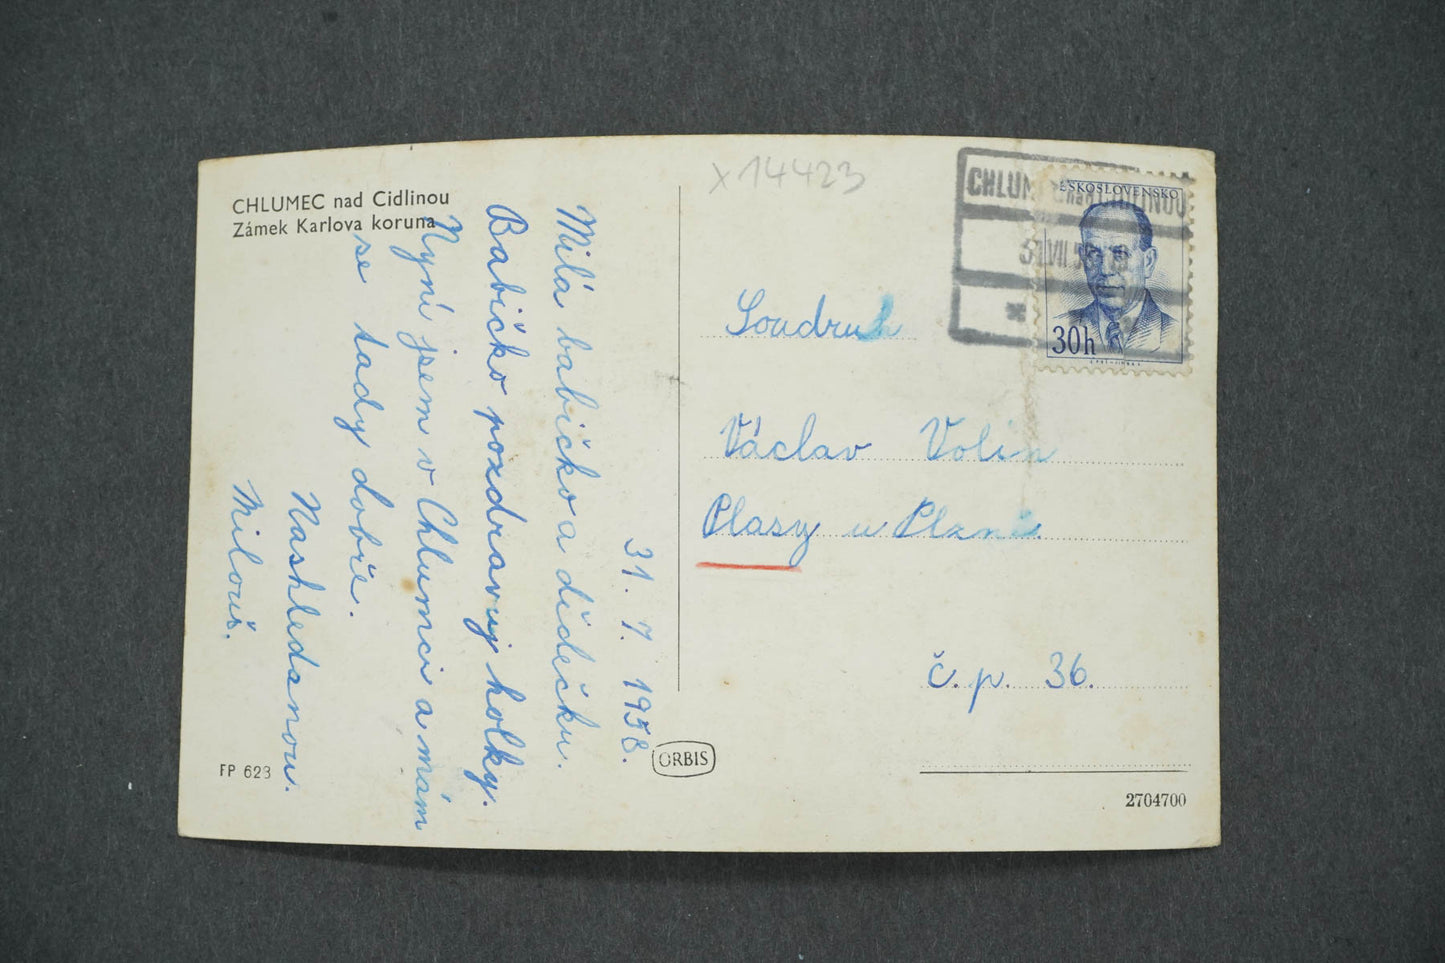 CHLUMEC nad Cidlinou
Zámek Karlova koruna
31. 7. 1958.
Milá babičko a dědečku.
Babičko pozdravuj holky.
Nyní jsem v Chlumci a mám
se tady dobře.
Nashledanou.
Milouš.
FP 623
ORBIS
X 14423
CHLUMEC nad CIDLINOU
31.VII 58
ČESKOSLOVENSKO
30h
Soudruh
Václav Volín
Plasy u Plzně.
č. p. 36.
2704700